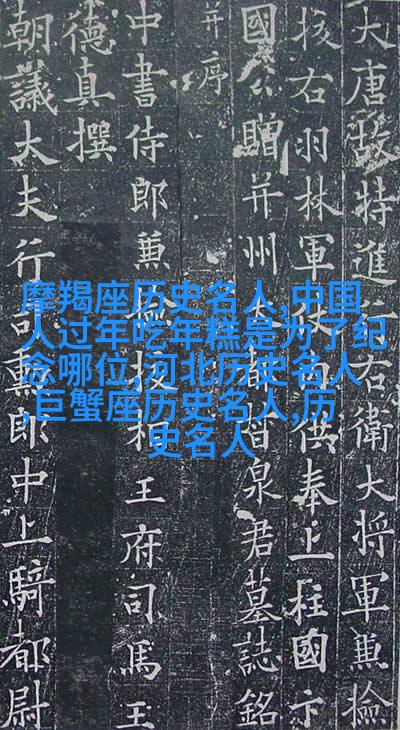 大唐故特進行右衛大將軍兼撿
挍右羽林軍仗内供奉上柱國卞
國公贈并州大都督泉君墓誌銘
并序
中書侍郎兼撿挍相王府司馬王
德真撰
朝議大夫行司勳郎中上騎都尉
摩羯座历史名人,中国
人过年吃年糕是为了纪
念哪位,河北历史名人
,巨蟹座历史名人,历
史名人